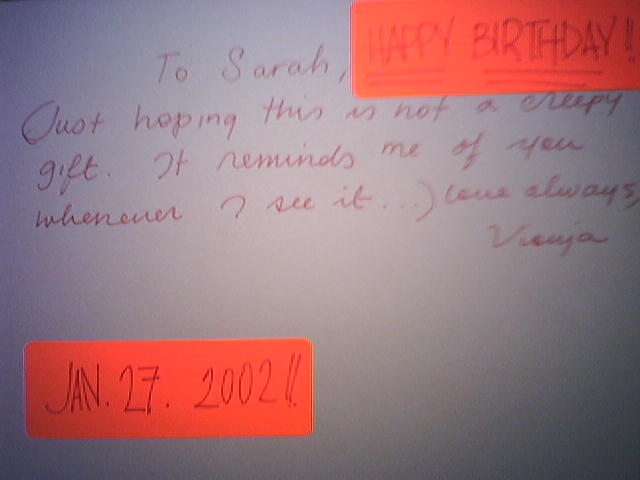 HAPPY BIRTHDAY!!
To Sarah,
(Just hoping this is not a creepy
gift. It reminds me of you
whenever I see it...) love always,
JAN. 27. 2002!!